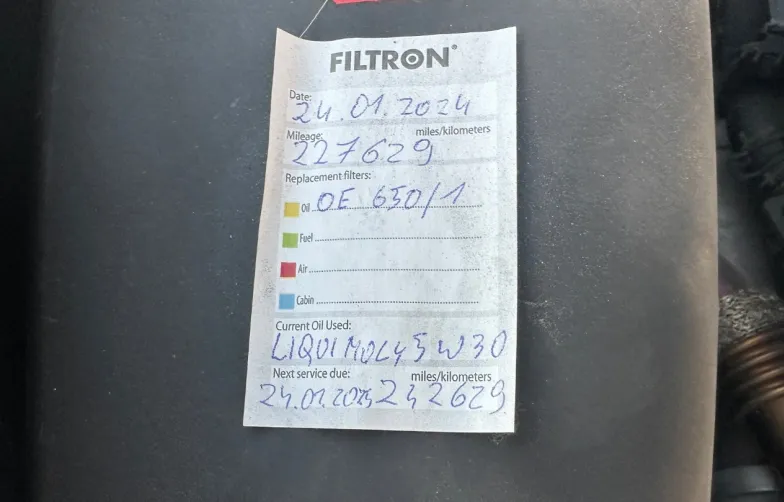 FILTRON®
Date:
24.01.2024
Mileage: miles/kilometers
227629
Replacement filters:
Oil OE 650/1
Fuel
Air
Cabin
Current Oil Used:
LIQUI MOLY 5W30
Next service due: miles/kilometers
24.01.2025 242629